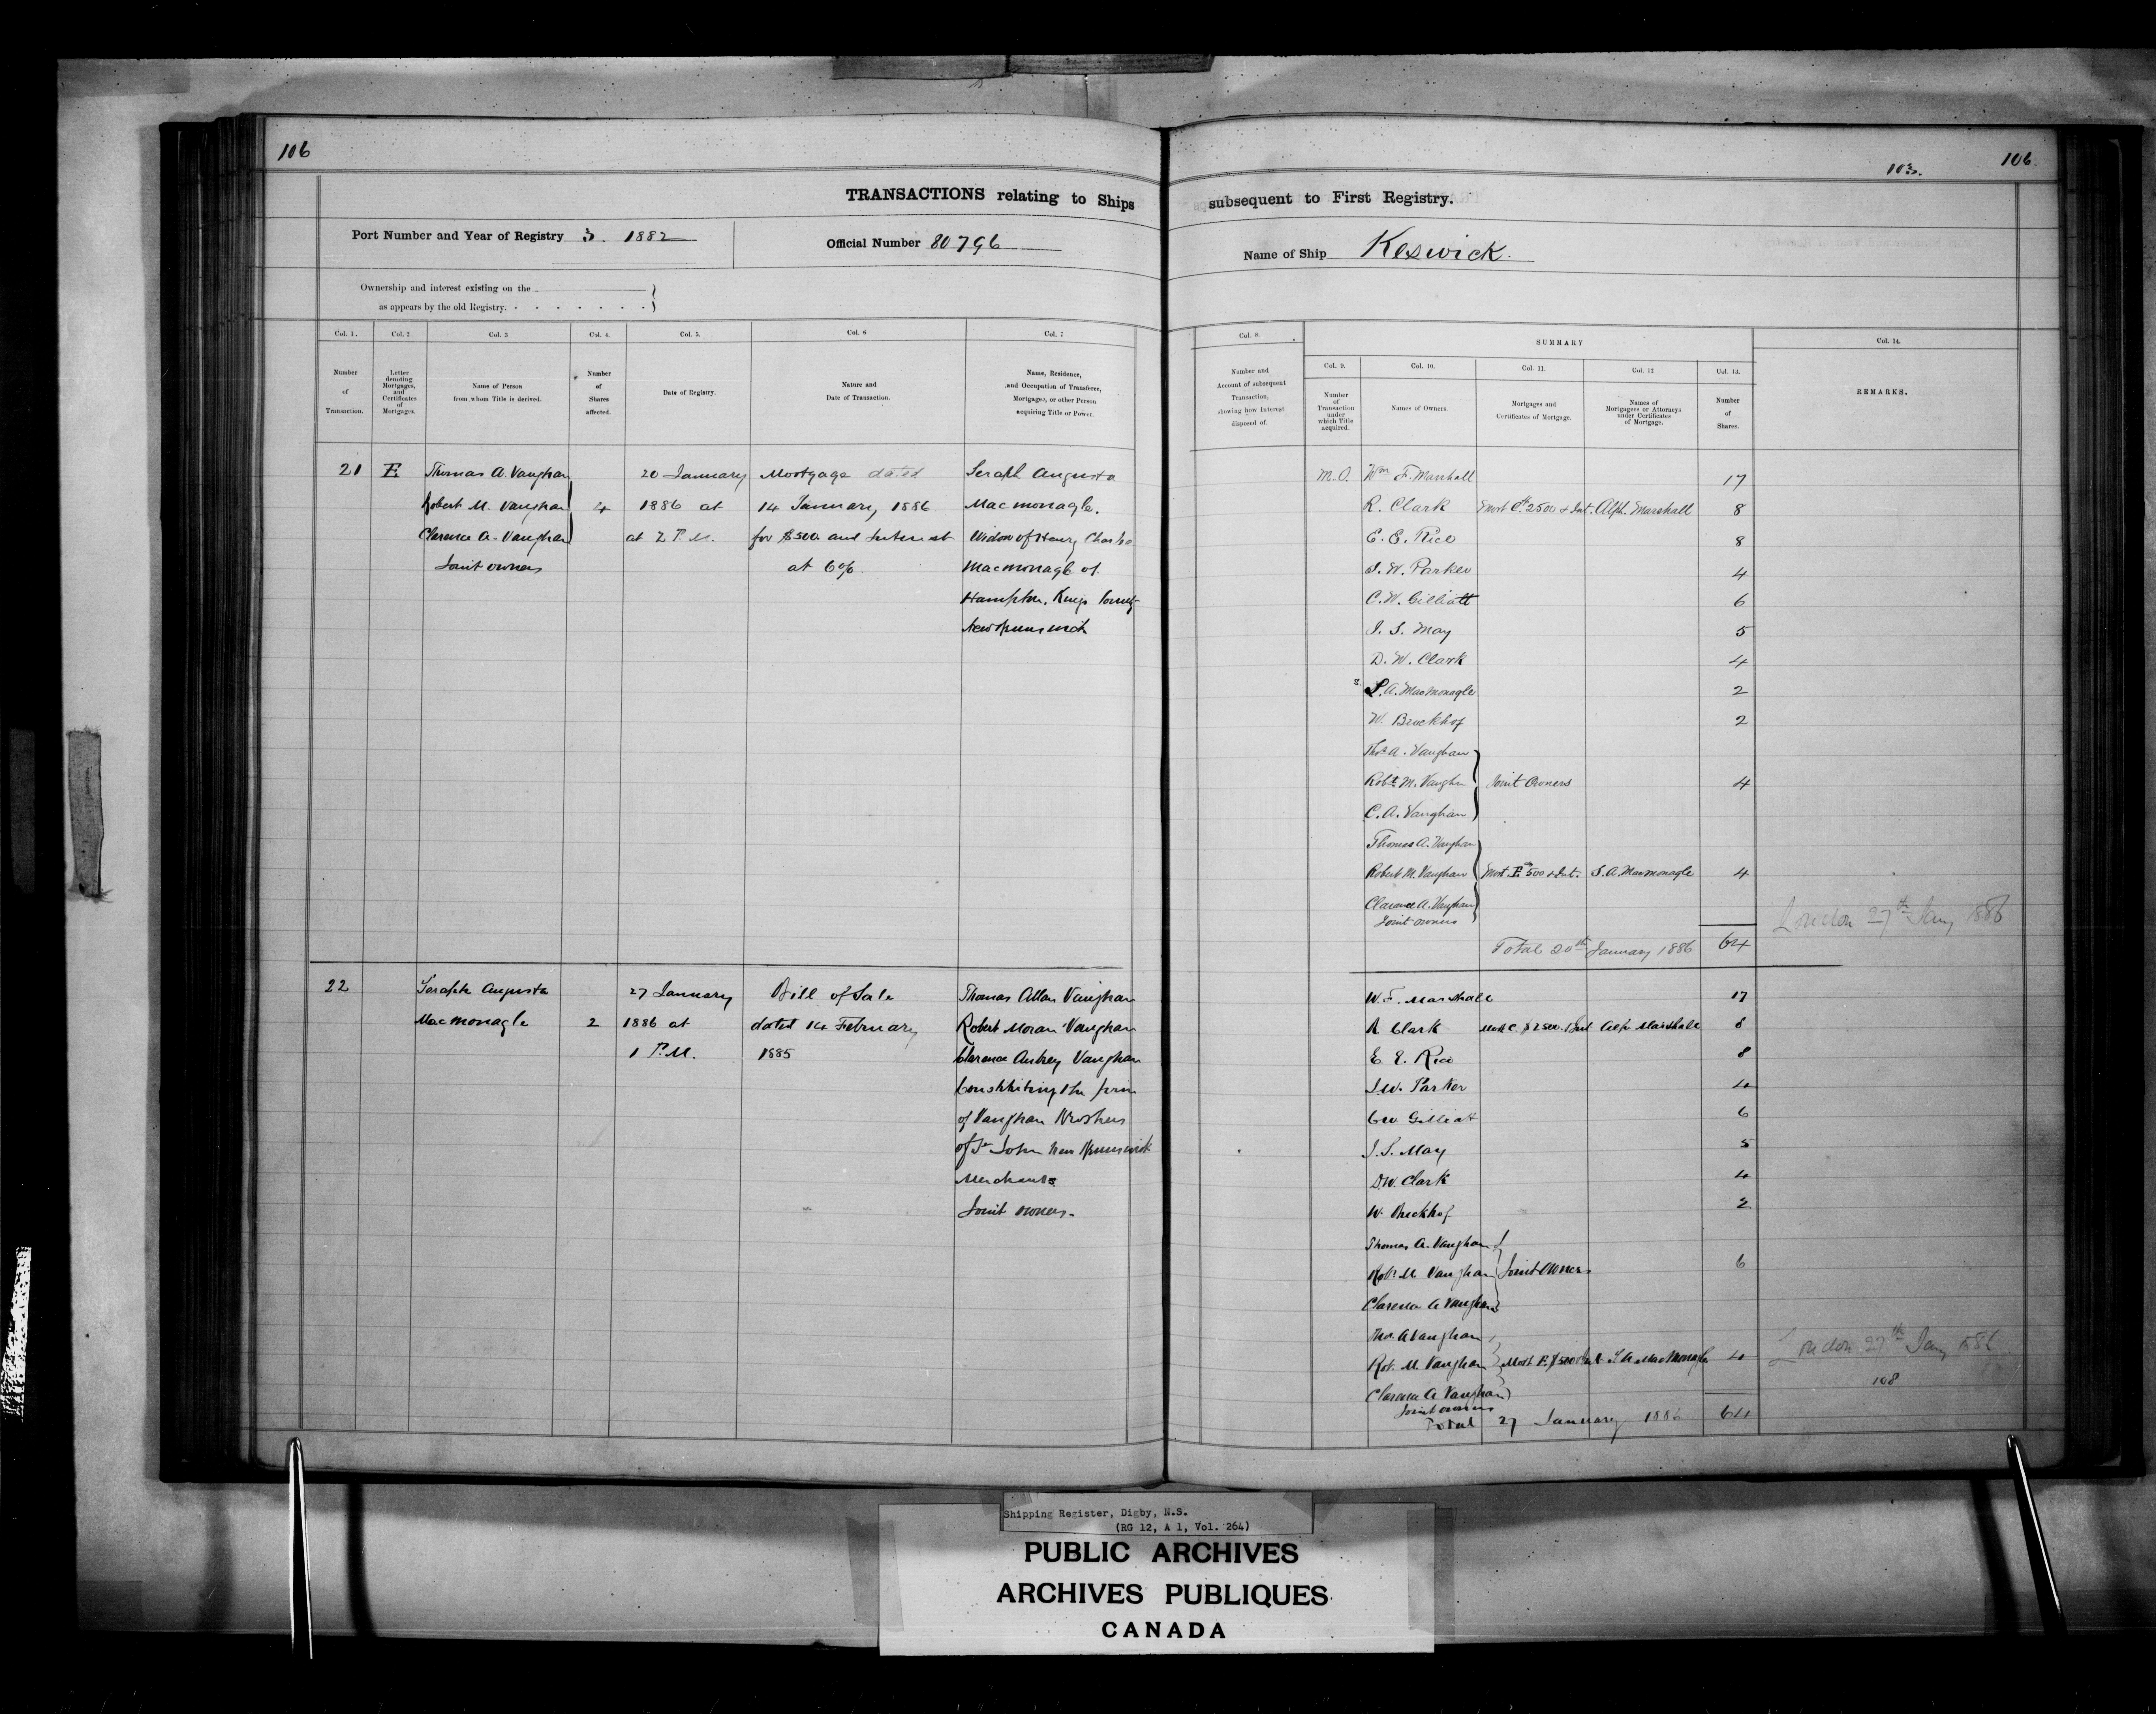 106
103.
106
TRANSACTIONS relating to Ships subsequent to First Registry.
Port Number and Year of Registry 3. 1882
Official Number 80796
Name of Ship Keswick.
Ownership and interest existing on the
as appears by the old Registry.
Col. 1.
Number
of
Transaction.
Col. 2
Letter
denoting
Mortgages,
and
Certificates
of
Mortgages.
Col. 3
Name of Person
from whom Title is derived.
Col. 4.
Number
of
Shares
affected.
Col. 5.
Date of Registry.
Col. 6
Nature and
Date of Transaction.
Col. 7
Name, Residence,
and Occupation of Transferee,
Mortgagee, or other Person
acquiring Title or Power.
Col. 8.
Number and
Account of subsequent
Transaction,
showing how Interest
disposed of.
SUMMARY
Col. 9.
Number
of
Transaction
under
which Title
acquired.
Col. 10.
Names of Owners.
Col. 11.
Mortgages and
Certificates of Mortgage.
Col. 12
Names of
Mortgagees or Attorneys
under Certificates
of Mortgage.
Col. 13.
Number
of
Shares.
Col. 14.
REMARKS.
21 E
Thomas A. Vaughan
Robert M. Vaughan
Clarence A. Vaughan
Joint owners
4
20 January
1886 at
at 2 P.M.
Mortgage dated
14 January, 1886
for $500. and Interest
at 6%.
Seraph Augusta
Macmonagle.
Widow of Henry Charles
Macmonagle of
Hampton, Kings County
New Brunswick
M.O. Wm F. Marshall 17
R. Clark Mort C. 2500 & Int. Alph. Marshall 8
E. E. Rice 8
J. W. Parker 4
C. W. Gilliatt 6
J. S. May 5
D. W. Clark 4
S. A. MacMonagle 2
W. Bruckhof 2
Thos A. Vaughan
Robt M. Vaughn Joint Owners 4
C. A. Vaughan
Thomas A. Vaughan
Robert M. Vaughan Mort. E. 500 & Int. S. A. Macmonagle 4
Clarence A. Vaughan
Joint owners
London 27th Jany 1886
Total 20th January 1886 64
22
Seraph Augusta
Macmonagle
2
27 January
1886 at
1 P.M.
Bill of Sale
dated 14 February
1885
Thomas Allan Vaughan
Robert Moran Vaughan
Clarence Aubrey Vaughan
Constituting the firm
of Vaughan Brothers
of St John New Brunswick
Merchants
Joint owners.
W. F. Marshall 17
R Clark Mort C. $2500. & Int Alph Marshall 8
E. E. Rice 8
J. W. Parker 4
C W Gilliatt 6
J. S. May 5
D. W. Clark 4
W. Bruckhof 2
Thomas A. Vaughan
Robt M Vaughan Joint Owners 6
Clarence A Vaughan
Thos. A Vaughan
Rob. M. Vaughan Mort E. $500 & Int S A MacMonagle 4
Clarence A Vaughan
Joint owners
London 27th Jany 1886
108
Total 27 January 1886 64
Shipping Register, Digby, N.S.
(RG 12, A 1, Vol. 264)
PUBLIC ARCHIVES
ARCHIVES PUBLIQUES
CANADA